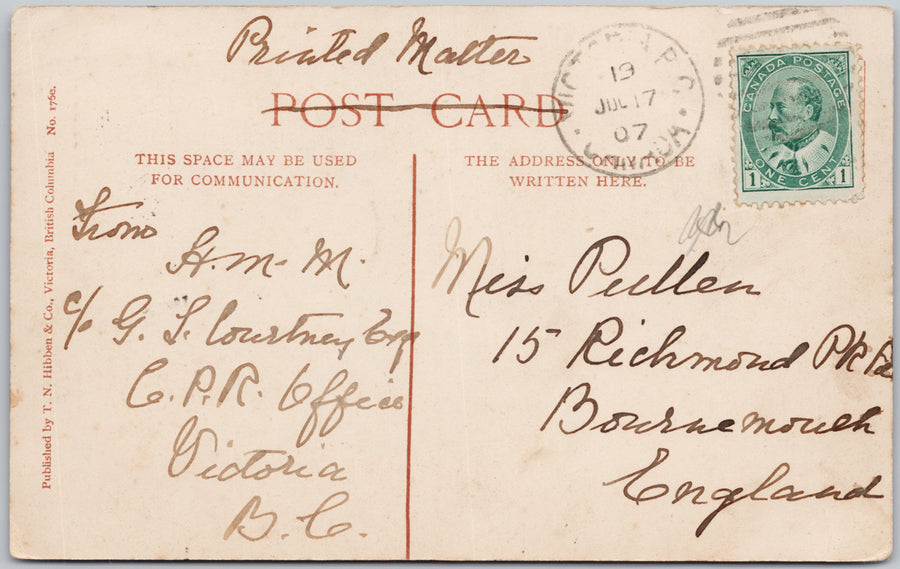 Printed Matter
POST CARD
VICTORIA B.C.
19
JUL 17
07
CANADA
CANADA POSTAGE
1 ONE CENT 1
THIS SPACE MAY BE USED
FOR COMMUNICATION.
THE ADDRESS ONLY TO BE
WRITTEN HERE.
From
H. M. M.
c/o G. L. Courtney Esq
C. P. R. Office
Victoria
B. C.
Miss Pullen
15 Richmond Pk Rd
Bournemouth
England
Published by T. N. Hibben & Co., Victoria, British Columbia No. 176e.